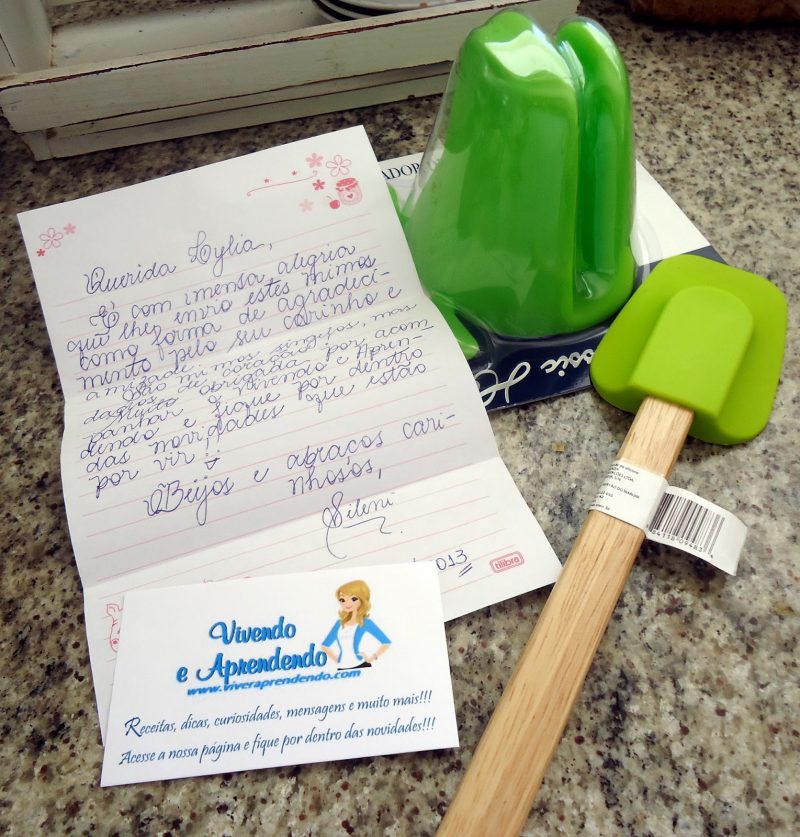 Querida Lylia,
É com imensa alegria
que lhes envio estes mimos
como forma de agradeci-
mento pelo seu carinho e
amizade
São mimos singelos, mas
dados de coração
Muito obrigada por acom
panhar o Vivendo e Apren-
dendo e fique por dentro
das novidades que estão
por vir
Beijos e abraços cari-
nhosos,
Sileni
013
tilibra
Vivendo
e Aprendendo
www.viveraprendendo.com
Receitas, dicas, curiosidades, mensagens e muito mais!!!
Acesse a nossa página e fique por dentro das novidades!!!
ADOR